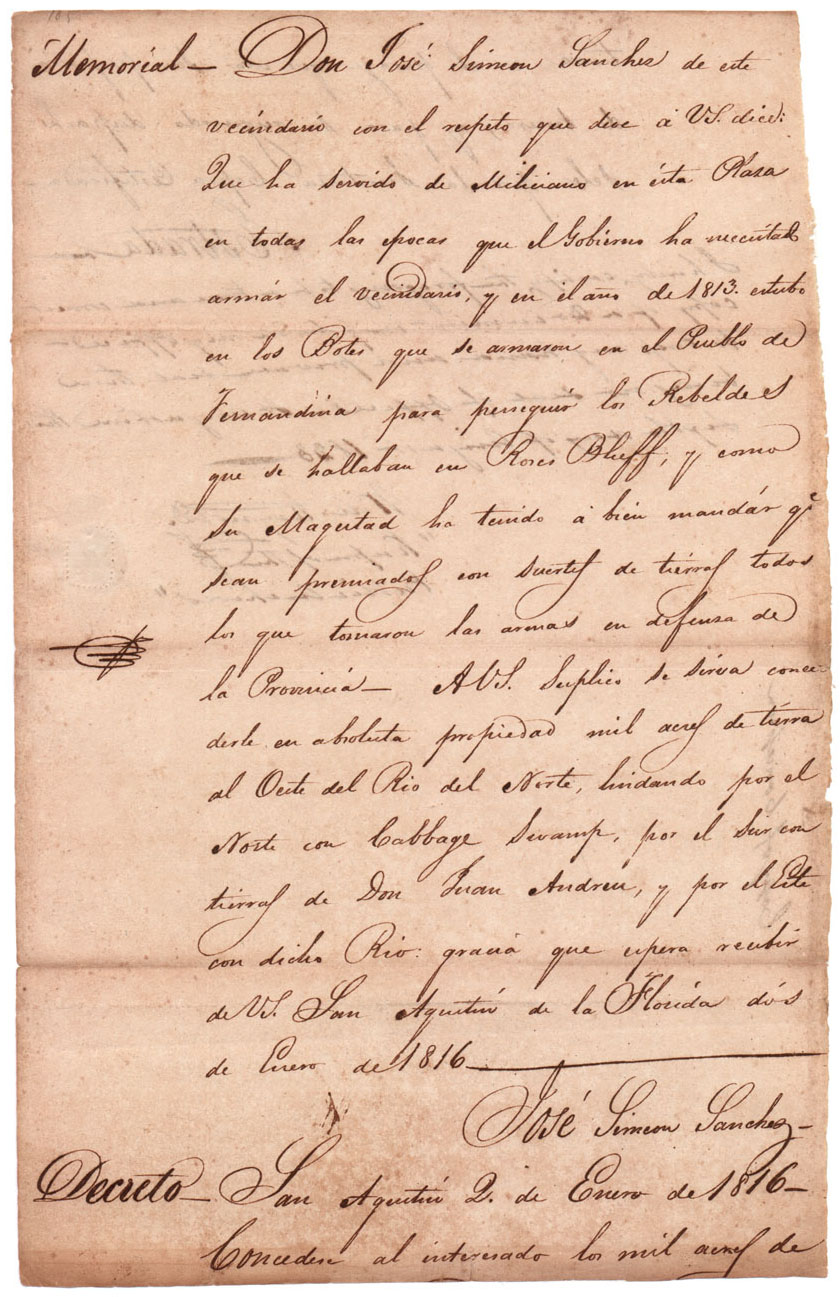 Memorial — Don José Simeon Sanchez de este
vecindario con el respeto que deve á VS. dice:
Que ha servido de Miliciano en ésta Plaza
en todas las epocas que el Gobierno ha necesitado
armár el vecindario, y en el año de 1813. estubo
en los Botes que se armaron en el Pueblo de
Fernandina para perseguir los Rebeldes
que se hallaban en Roses Bluff, y como
Su Magestad ha tenido á bien mandár qe
sean premiados con suertes de tierras todos
los que tomaron las armas en defenza de
la Provincia — A VS. Suplico se sirva conce-
derle en absoluta propiedad mil acres de tierra
al Oeste del Rio del Norte, lindando por el
Norte con Cabbage Swamp, por el Sur con
tierras de Don Juan Andreu, y por el Este
con dicho Rio: gracia que espera recibir
de VS. San Agustin de la Florida dós
de Enero de 1816 —
José Simeon Sanchez —
Decreto — San Agustin 2. de Enero de 1816 —
Concedese al interesado los mil acres de